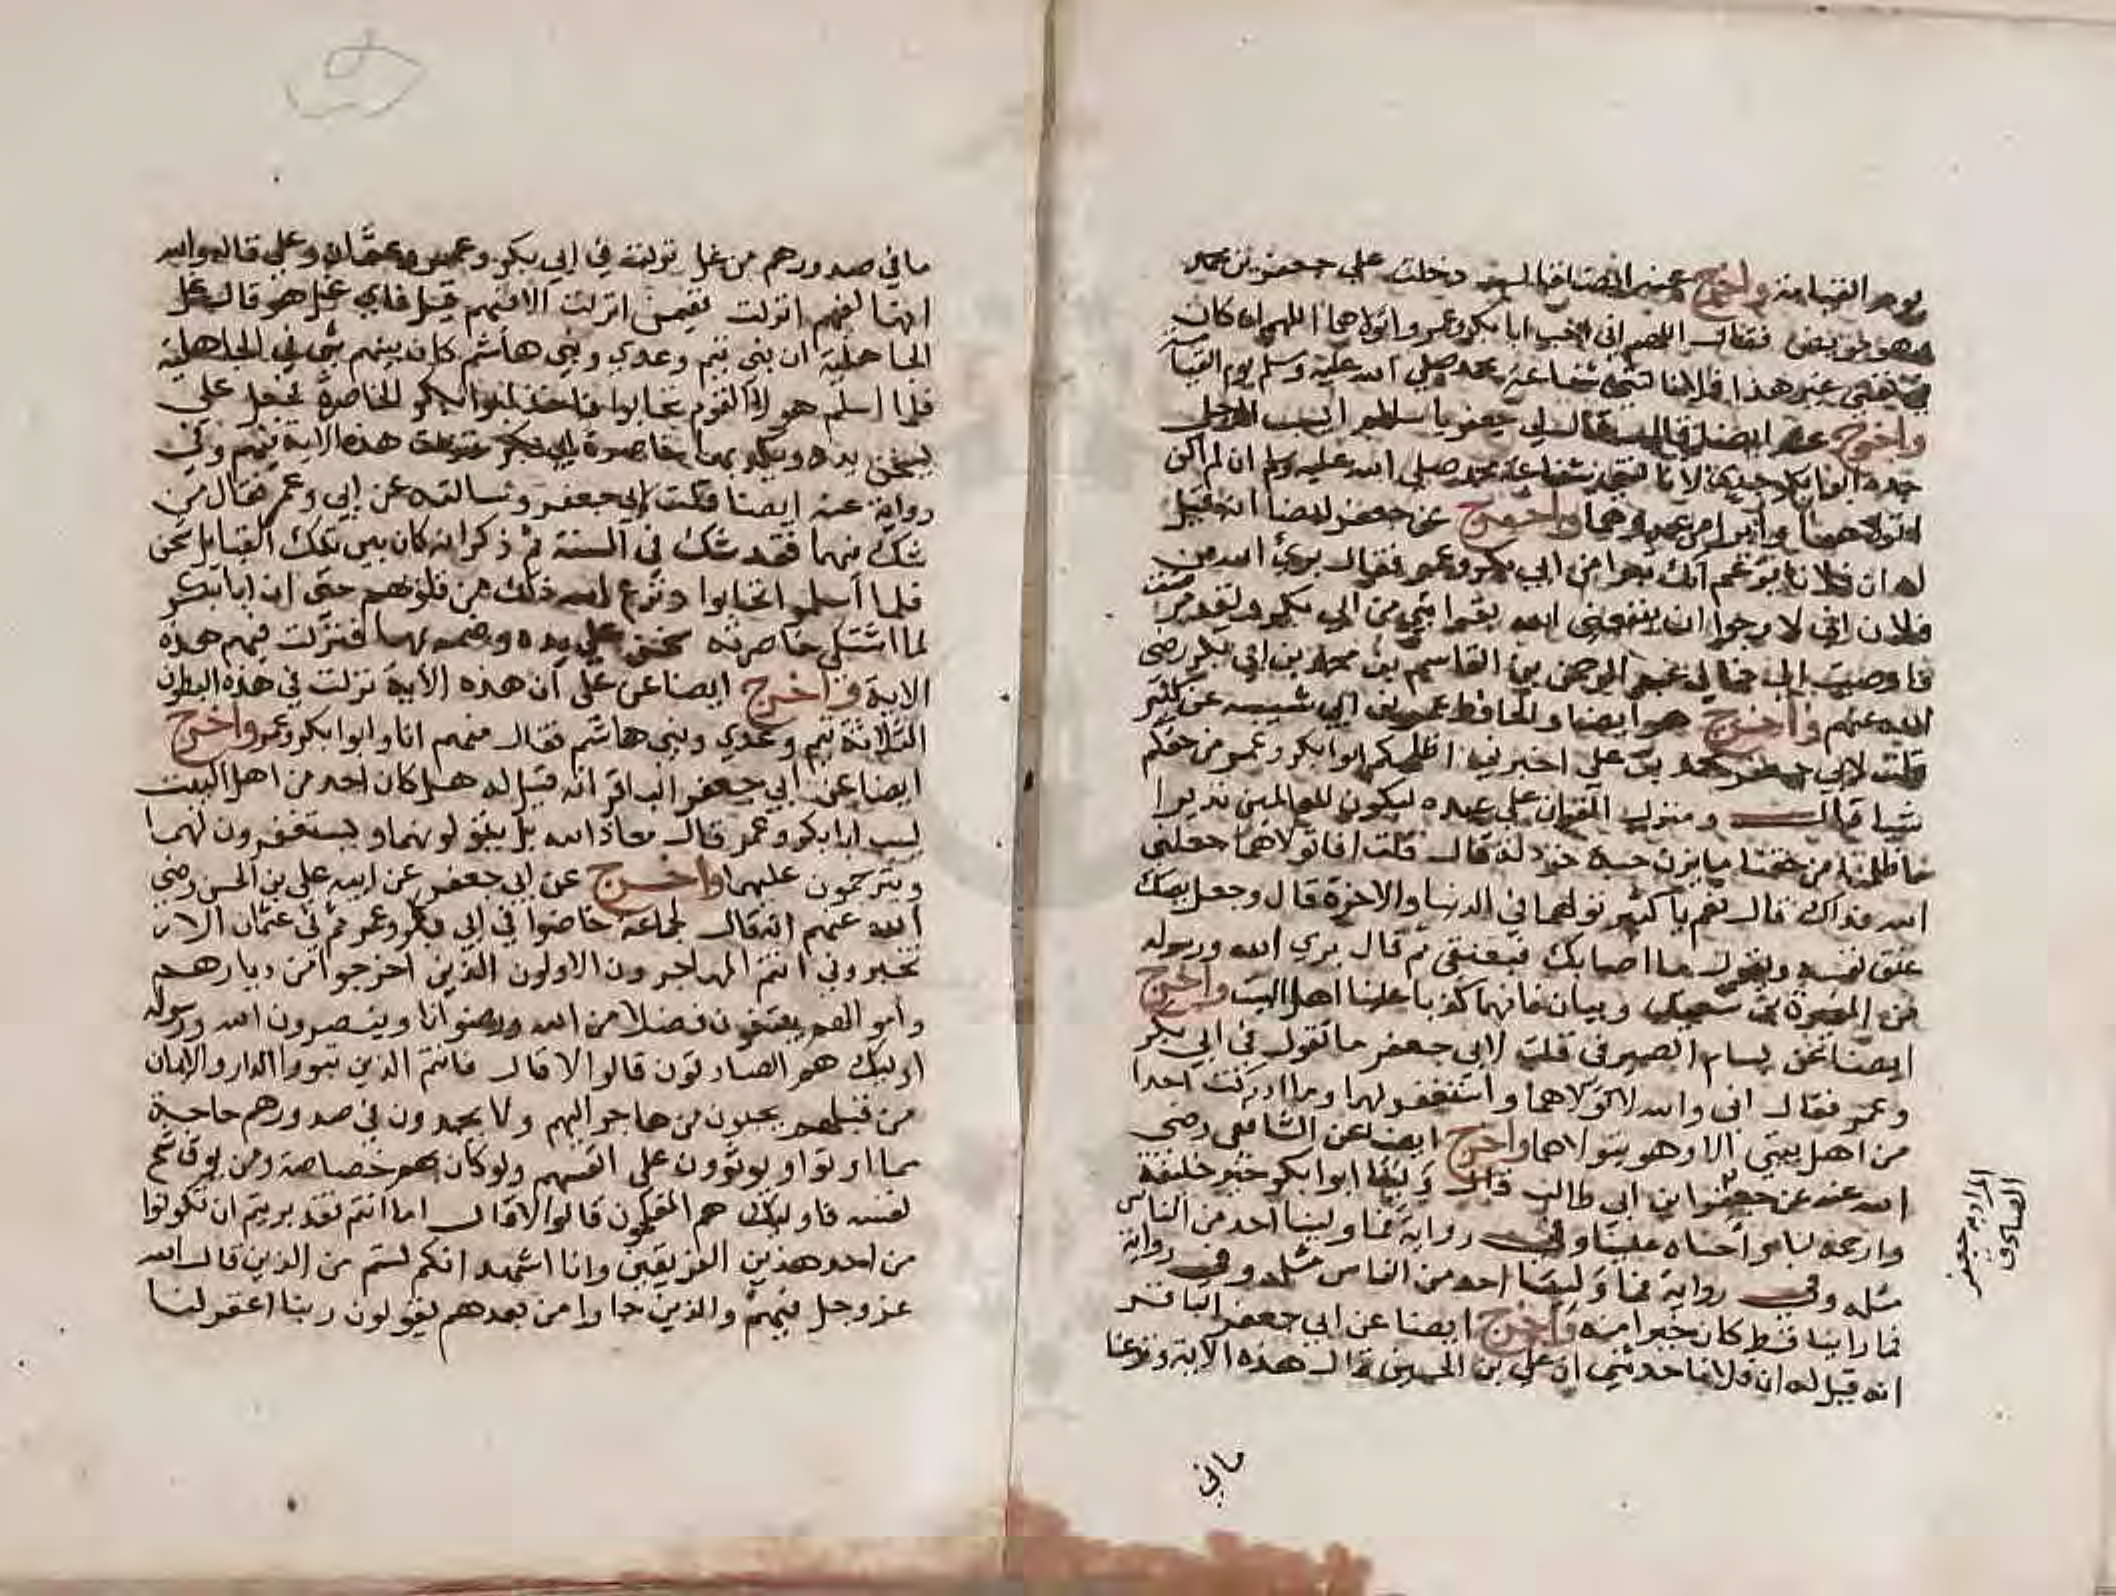 يوم القيامة واخرج عنه ايضا قال دخلت على جعفر بن محمد
وهو مريض فقال اللهم اني احب ابا بكر وعمر واتولاهما اللهم ان كان
في نفسي غير هذا فلا نالتني شفاعة محمد صلى الله عليه وسلم يوم القيامة
واخرج عنه ايضا قال قال لي جعفر يا سالم ايسب الرجل
جده ابو بكر جدي لا نالتني شفاعة محمد صلى الله عليه وسلم ان لم اكن
اتولاهما وابرا من عدوهما واخرج عن جعفر ايضا انه قيل
له ان فلانا يزعم انك تبرا من ابي بكر وعمر فقال بري الله من
فلان اني لارجوا ان ينفعني الله بقرابتي من ابي بكر ولقد مرضت
فاوصيت الى خالي عبد الرحمن بن القاسم بن محمد بن ابي بكر رضي
الله عنهم واخرج هو ايضا والحافظ عمر بن ابي شيبه عن كثير
قلت لابي جعفر محمد بن علي اخبرني اظلمكم ابو بكر وعمر من حقكم
شيا فقال ومنزل الفرقان على عبده ليكون للعالمين نذيرا
ما ظلمنا من حقنا ما يزن حبة خردلة قال قلت افاتولاهما جعلني
الله فداك قال نعم يا كثير تولهما في الدنيا والاخرة قال وجعل يصك
عنق نفسه ويقول ما اصابك فبعنقي ثم قال بري الله ورسوله
من المغيرة بن سعيد وبيان فانهما كذبا علينا اهل البيت واخرج
ايضا عن بسام الصيرفي قلت لابي جعفر ما تقول في ابي بكر
وعمر فقال اني والله لاتولاهما واستغفر لهما وما ادركت احدا
من اهل بيتي الا وهو يتولاهما واخرج ايضا عن الشافعي رضي
الله عنه عن جعفر ابن ابي طالب قال ولينا ابو بكر خير خليفة
وارحمه لنا واحناه علينا وفي رواية فما ولينا احد من الناس
مثله وفي رواية فما ولينا احد من الناس مثله وفي رواية
فما راينا قط كان خيرا منه واخرج ايضا عن ابي جعفر الباقر
انه قيل له ان فلانا حدثني ان علي بن الحسين قال هذه الاية ونزعنا
ما في
المراد به جعفر
الصادق
ما في صدورهم من غل نزلت في ابي بكر وعمر وعثمان وعلي قال والله
انها لفيهم انزلت ففيمن انزلت الا فيهم قيل فاي غل هو قال غل
الجاهلية ان بني تيم وعدي وبني هاشم كان بينهم شي في الجاهلية
فلما اسلم هولا القوم تحابوا فاخذت ابو بكر الخاصرة فجعل علي
يسخن يده ويكمد بها خاصرة ابي بكر فنزلت هذه الاية فيهم وفي
رواية عنه ايضا قلت لابي جعفر وسالته عن ابي وعمر فقال من
شك فيهما فقد شك في السنة ثم ذكر انه كان بين تلك القبايل شحن
فلما اسلموا تحابوا ونزع الله ذلك من قلوبهم حتى ان ابا بكر
لما اشتكى خاصرته سخن علي يده وضمده بها فنزلت فيهم هذه
الاية واخرج ايضا عن علي ان هذه الاية نزلت في هذه البطون
الثلاثة تيم وعدي وبني هاشم فقال منهم انا وابوا بكر وعمر واخرج
ايضا عن ابي جعفر الباقر انه قيل له هل كان احد من اهل البيت
يسب ابا بكر وعمر قال معاذ الله بل يتولونهما ويستغفرون لهما
ويترحمون عليهما واخرج عن ابي جعفر عن ابيه علي بن الحسن رضي
الله عنهم انه قال لجماعة خاضوا في ابي بكر وعمر ثم في عثمان الا
تخبروني انتم المهاجرون الاولون الذين اخرجوا من ديارهم
واموالهم يبتغون فضلا من الله ورضوانا وينصرون الله ورسوله
اوليك هم الصادقون قالوا لا قال فانتم الذين تبووا الدار والايمان
من قبلهم يحبون من هاجر اليهم ولا يجدون في صدورهم حاجة
مما اوتوا ويوثرون على انفسهم ولو كان بهم خصاصة ومن يوق شح
نفسه فاوليك هم المفلحون قالوا لا قال اما انتم فقد بريتم ان تكونوا
من احد هذين الفريقين وانا اشهد انكم لستم من الذين قال الله
عز وجل فيهم والذين جاوا من بعدهم يقولون ربنا اغفر لنا